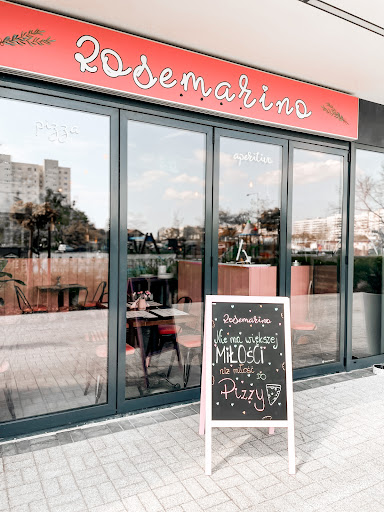 Rosemarino
pizza
aperitivo
Rosemarino
Nie ma większej
MiŁOŚCi
niż miłość do
Pizzy